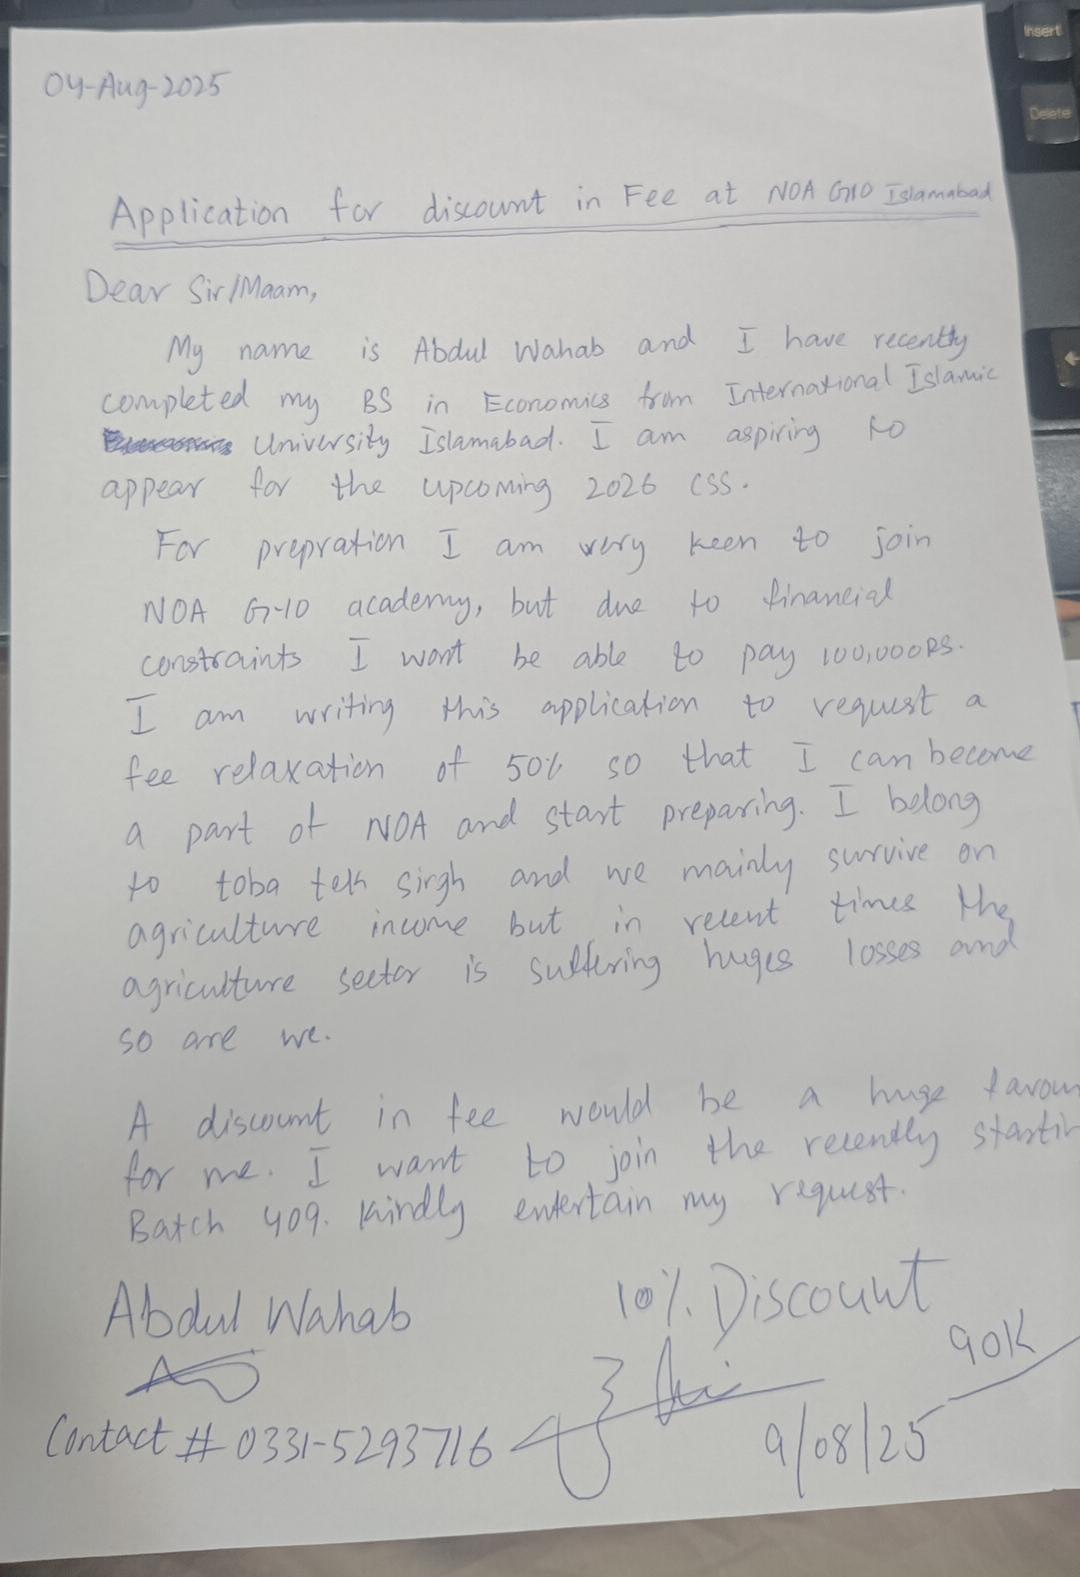 Insert
Delete
04-Aug-2025
Application for discount in Fee at NOA G10 Islamabad
Dear Sir/Maam,
My name is Abdul Wahab and I have recently
completed my BS in Economics from International Islamic
University Islamabad. I am aspiring to
appear for the upcoming 2026 CSS.
For prepration I am very keen to join
NOA G-10 academy, but due to financial
constraints I wont be able to pay 100,000RS.
I am writing this application to request a
fee relaxation of 50% so that I can become
a part of NOA and start preparing. I belong
to toba tek sirgh and we mainly survive on
agriculture income but in recent times the
agriculture sector is suffering huges losses and
so are we.
A discount in fee would be a huge favour
for me. I want to join the recently startin
Batch 409. Kindly entertain my request.
Abdul Wahab
10% Discount
90K
Contact # 0331-5293716
9/08/25